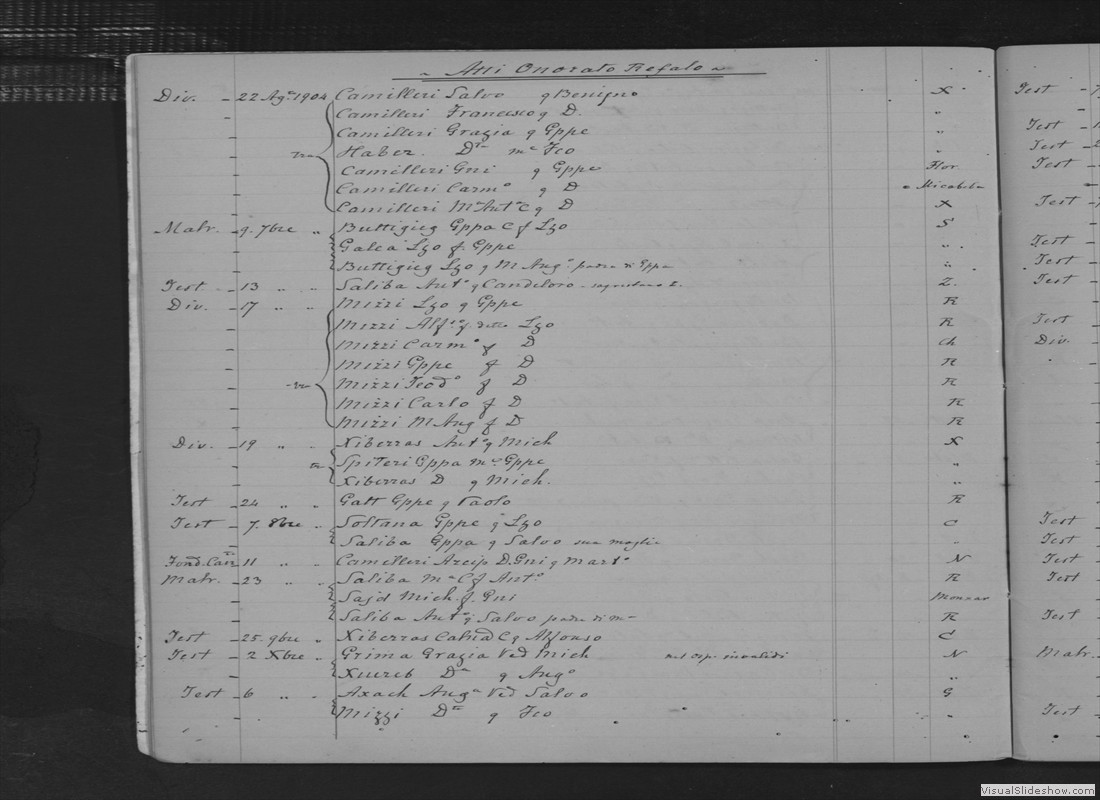 Atti Onorato Refalo
Div. - 22 Ag. 1904 Camilleri Salvo q Benigno X
Camilleri Francesco q D. "
Camilleri Grazia q Gppe "
Haber. Dta me Fco "
Camilleri Gni q Gppe Flor.
Camilleri Carmo q D
Camilleri M Anta C q D X
Matr. - 9. 7bre " Buttigieg Gppa C f Lzo S
Galea Lzo f. Gppe "
Buttigieg Lzo q M Ango. padre di Gppa "
Test - 13 " " Saliba Anto q Candeloro Z.
Div. - 17 " " Mizzi Lzo q Gppe R
Mizzi Alfso f. detto Lzo R
Mizzi Carmo f D Ch
Mizzi Gppe f D R
Mizzi Teodo f D R
Mizzi Carlo f D R
Mizzi M Ang f D R
Div. - 19 " " Xiberras Anto q Mich X
Spiteri Gppa me Gppe "
Xiberras D q Mich. "
Test - 24 " " Gatt Gppe q Paolo R
Test - 7. 8bre " Soltana Gppe q Lzo C
Saliba Gppa q Salvo sua moglie "
Fond. Can - 11 " " Camilleri Arcip D. Gni q Marto N
Matr. - 23 " " Saliba Ma C f Anto R
Sajd Mich. f. Gni Munxar
Saliba Anto q Salvo padre di m- R
Test - 25. 9bre " Xiberras Catnd C q Alfonso C
Test - 2 Xbre " Grima Grazia Ved Mich nel Osp. invalidi N
Xuereb Da q Ango "
Test - 6 " " Axach Anga Ved Salvo G
Mizzi Dta q Fco "
Test
Test
Test
Test
Test
Test
Test
Test
Test
Div.
Test
Test
Test
Test
Test
Matr.
Test
VisualSlideshow.com